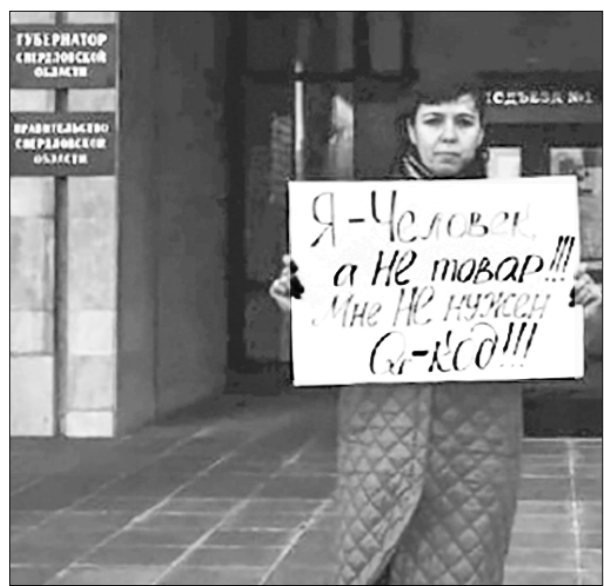 ГУБЕРНАТОР
СВЕРДЛОВСКОЙ
ОБЛАСТИ
ПРАВИТЕЛЬСТВО
СВЕРДЛОВСКОЙ
ОБЛАСТИ
ПОДЪЕЗД №1
Я-Человек,
а НЕ товар!!!
Мне НЕ нужен
Qr-код!!!